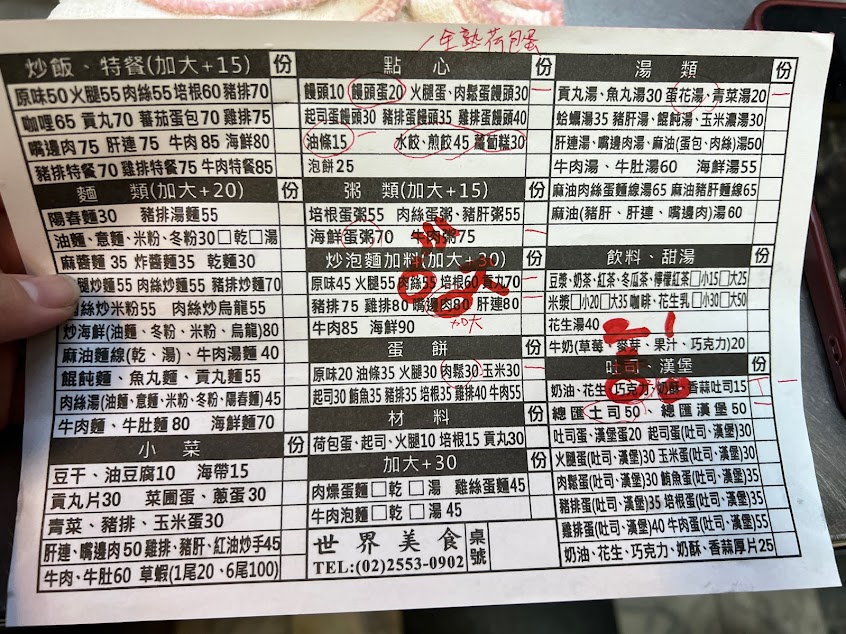 全熟荷包蛋
炒飯、特餐(加大+15) 份
原味50火腿55肉絲55培根60豬排70
咖哩65 貢丸70 蕃茄蛋包70 雞排75
嘴邊肉75 肝連75 牛肉85 海鮮80
豬排特餐70 雞排特餐75 牛肉特餐85
麵 類(加大+20) 份
陽春麵30 豬排湯麵55
油麵、意麵、米粉、冬粉30□乾□湯
麻醬麵 35 炸醬麵 35 乾麵30
腿炒麵55 肉絲炒麵55 豬排炒麵70
肉絲炒米粉55 肉絲炒烏龍55
炒海鮮(油麵、冬粉、米粉、烏龍)80
麻油麵線(乾、湯)、牛肉湯麵 40
餛飩麵、魚丸麵、貢丸麵55
肉絲湯(油麵、意麵、米粉、冬粉、陽春麵)45
牛肉麵、牛肚麵80 海鮮麵70
小 菜 份
豆干、油豆腐10 海帶15
貢丸片30 菜圃蛋、蔥蛋30
青菜、豬排、玉米蛋30
肝連、嘴邊肉50雞排、豬肝、紅油炒手45
牛肉、牛肚60 草蝦(1尾20、6尾100)
點 心 份
饅頭10 饅頭蛋20 火腿蛋、肉鬆蛋饅頭30
起司蛋饅頭30 豬排蛋饅頭35 雞排蛋饅頭40
油條15 水餃、煎餃45 蘿蔔糕30
泡餅25
粥 類(加大+15) 份
培根蛋粥55 肉絲蛋粥、豬肝粥55
海鮮蛋粥70 牛肉粥75
炒泡麵加料(加大+30) 份
原味45火腿55肉絲55培根60貢丸70
豬排75 雞排80 嘴邊肉80 肝連80
牛肉85 海鮮90
加大
蛋 餅 份
原味20油條35火腿30肉鬆30玉米30
起司30鮪魚35豬排35培根35雞排40牛肉55
材 料 份
荷包蛋、起司、火腿10培根15貢丸30
加大+30 份
肉燥蛋麵□乾□湯 雞絲蛋麵45
牛肉泡麵□乾□湯45
世界美食 桌號
TEL:(02)2553-0902
湯 類 份
貢丸湯、魚丸湯30蛋花湯、青菜湯20
蛤蠣湯35豬肝湯、餛飩湯、玉米濃湯30
肝連湯、嘴邊肉湯、麻油(蛋包、肉絲)湯50
牛肉湯、牛肚湯60 海鮮湯55
麻油肉絲蛋麵線湯65 麻油豬肝麵線65
麻油(豬肝、肝連、嘴邊肉)湯60
飲料、甜湯 份
豆漿、奶茶、紅茶、冬瓜茶、檸檬紅茶□小15□大25
米漿□小20□大35 咖啡、花生乳□小30□大50
花生湯40
牛奶(草莓、麥芽、果汁、巧克力)20
吐司、漢堡 份
奶油、花生、巧克力、奶酥、香蒜吐司15
總匯土司50 總匯漢堡50
吐司蛋、漢堡蛋20 起司蛋(吐司、漢堡)30
火腿蛋(吐司、漢堡)30玉米蛋(吐司、漢堡)30
肉鬆蛋(吐司、漢堡)30鮪魚蛋(吐司、漢堡)35
豬排蛋(吐司、漢堡)35培根蛋(吐司、漢堡)35
雞排蛋(吐司、漢堡)40牛肉蛋(吐司、漢堡)55
奶油、花生、巧克力、奶酥、香蒜厚片25